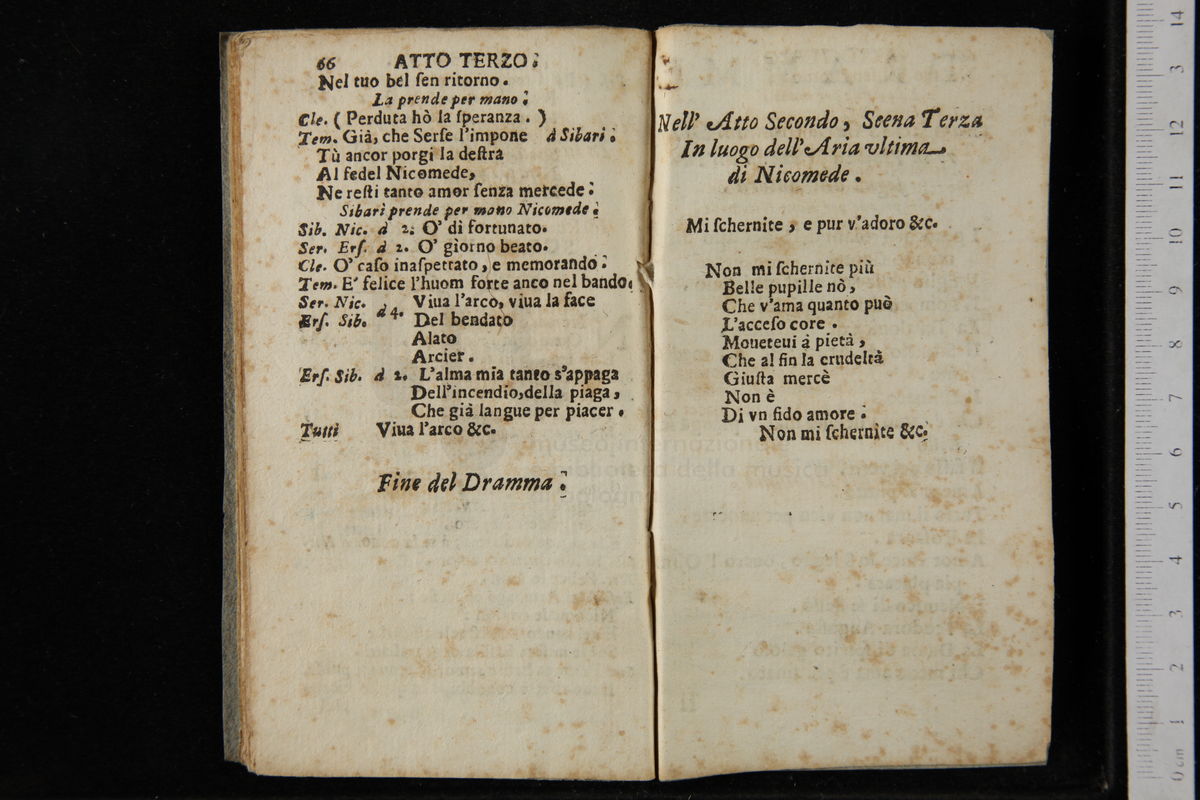 66 ATTO TERZO.
Nel tuo bel ſen ritorno.
La prende per mano.
Cle. ( Perduta hò la ſperanza. )
Tem. Già, che Serſe l'impone à Sibari.
Tù ancor porgi la deſtra
Al fedel Nicomede,
Ne reſti tanto amor ſenza mercede.
Sibari prende per mano Nicomede.
Sib. Nic. à 2. O' dì fortunato.
Ser. Erſ. à 2. O' giorno beato.
Cle. O' caſo inaſpettato, e memorando.
Tem. E' felice l'huom forte anco nel bando.
Ser. Nic. Viua l'arco, viua la face
Erſ. Sib. à 4. Del bendato
Alato
Arcier.
Erſ. Sib. à 2. L'alma mia tanto s'appaga
Dell'incendio, della piaga,
Che già langue per piacer.
Tutti Viua l'arco &c.
Fine del Dramma.
Nell' Atto Secondo, Scena Terza
In luogo dell'Aria vltima
di Nicomede.
Mi ſchernite, e pur v'adoro &c.
Non mi ſchernite più
Belle pupille nò,
Che v'ama quanto può
L'acceſo core.
Moueteui à pietà,
Che al fin la crudeltà
Giuſta mercè
Non è
Di vn fido amore.
Non mi ſchernite &c.
museo internazionale
della musica
0 cm 1 2 3 4 5 6 7 8 9 10 11 12 3 14